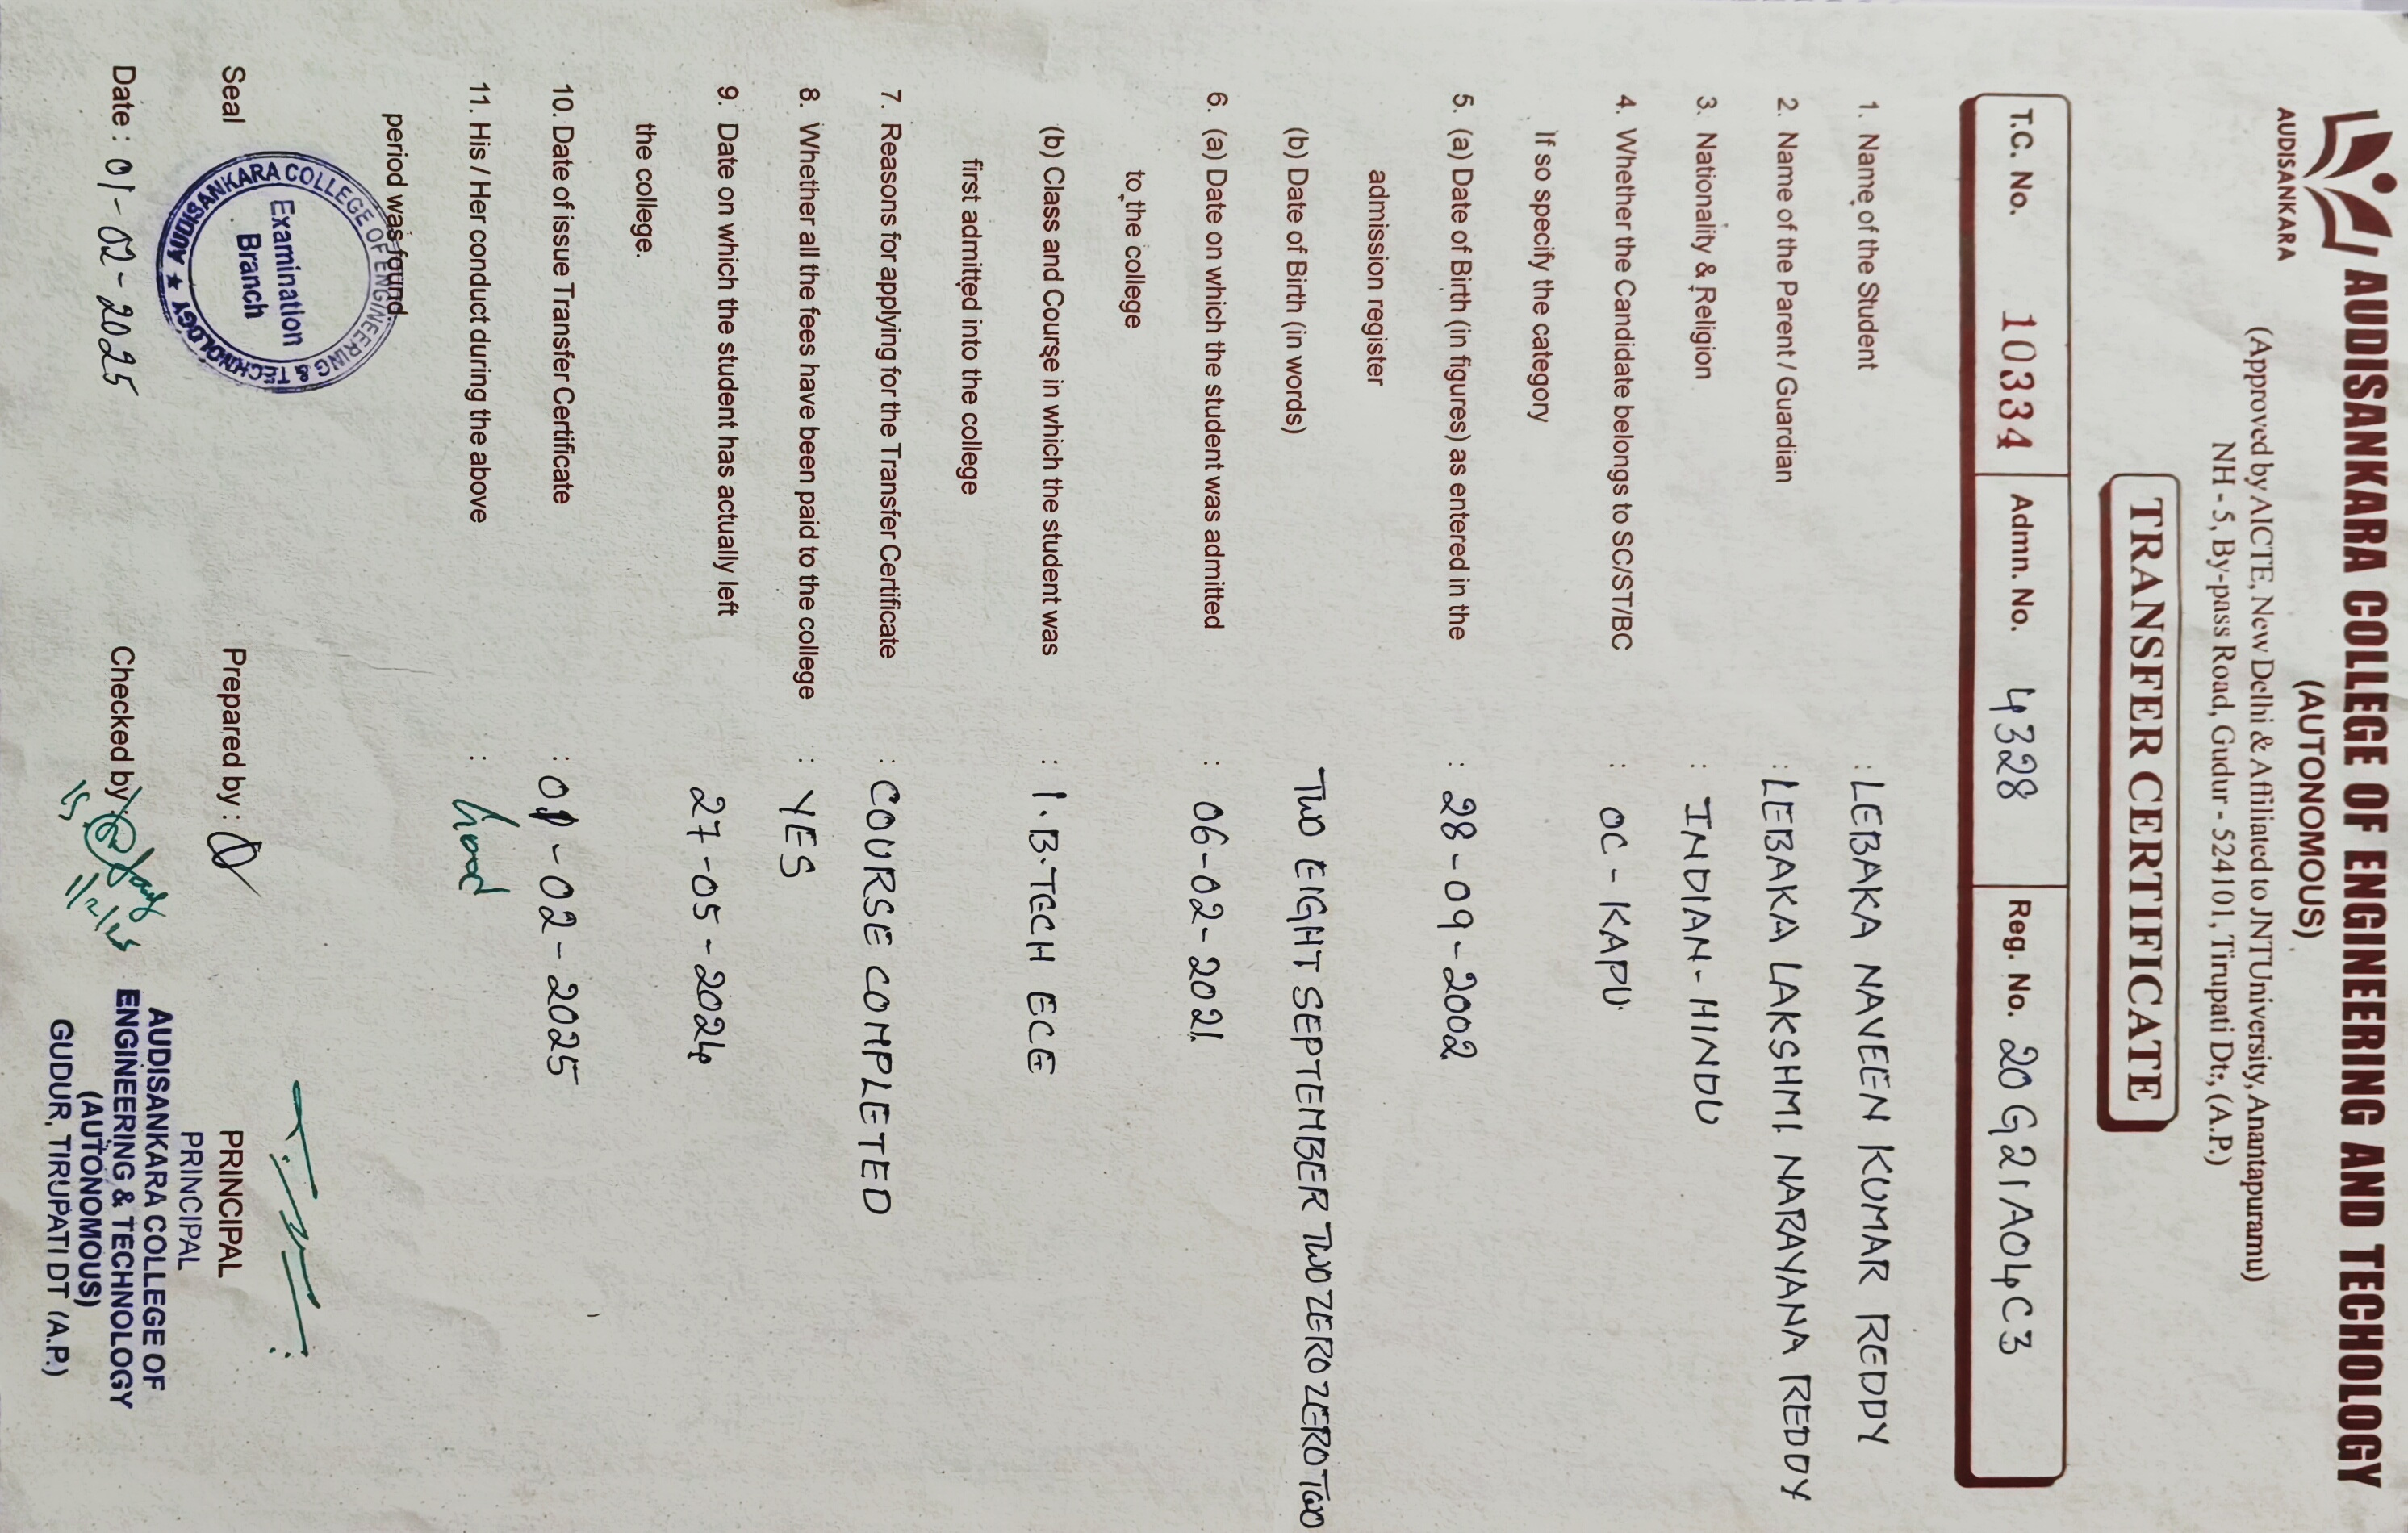 AUDISANKARA COLLEGE OF ENGINEERING AND TECHOLOGY
AUDISANKARA
(AUTONOMOUS)
(Approved by AICTE, New Delhi & Affiliated to JNTUniversity, Anantapuramu)
NH - 5, By-pass Road, Gudur - 524101, Tirupati Dt:, (A.P.)
TRANSFER CERTIFICATE
T.C. No. 10334 Admn. No. 4328 Reg. No. 20G21A04C3
1. Name of the Student : LEBAKA NAVEEN KUMAR REDDY
2. Name of the Parent / Guardian : LEBAKA LAKSHMI NARAYANA REDDY
3. Nationality & Religion : INDIAN - HINDU
4. Whether the Candidate belongs to SC/ST/BC : OC - KAPU
If so specify the category
5. (a) Date of Birth (in figures) as entered in the : 28-09-2002
admission register
(b) Date of Birth (in words) TWO EIGHT SEPTEMBER TWO ZERO ZERO TWO
6. (a) Date on which the student was admitted : 06-02-2021
to the college
(b) Class and Course in which the student was : I. B.TECH ECE
first admitted into the college
7. Reasons for applying for the Transfer Certificate : COURSE COMPLETED
8. Whether all the fees have been paid to the college : YES
9. Date on which the student has actually left 27-05-2024
the college.
10. Date of issue Transfer Certificate : 01-02-2025
11. His / Her conduct during the above : Good
period was found.
AUDISANKARA COLLEGE OF ENGINEERING & TECHNOLOGY
Examination
Branch
Seal
Prepared by :
PRINCIPAL
PRINCIPAL
AUDISANKARA COLLEGE OF
ENGINEERING & TECHNOLOGY
(AUTONOMOUS)
GUDUR, TIRUPATI DT (A.P.)
Date : 01-02-2025
Checked by
1/2/25